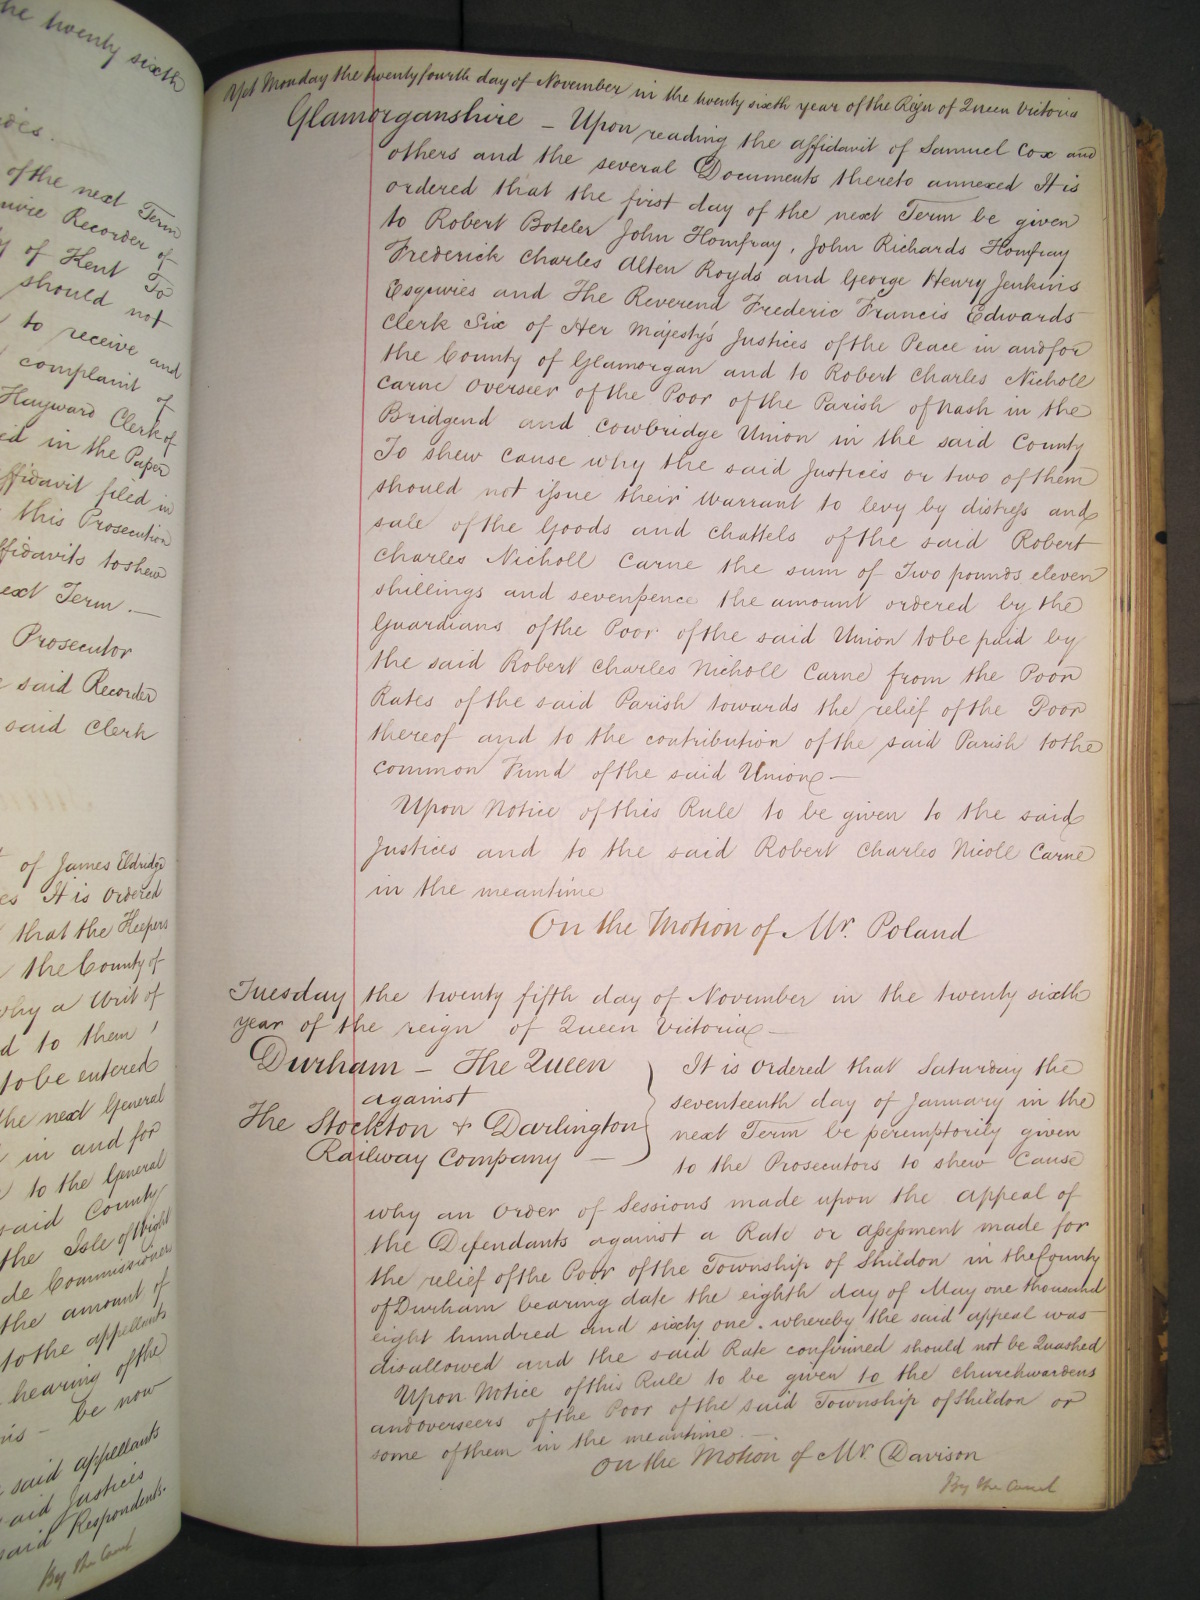 the twenty sixth
of the next Term
Recorder of
of Kent To
should not
to receive and
complaint of
Hayward Clerk of
in the Paper
affidavit filed in
this Prosecution
affidavits to shew
next Term. —
Prosecutor
said Recorder
said Clerk
of James Eldridge
It is ordered
that the Keepers
the County of
why a Writ of
to them
to be entered
the next General
in and for
to the General
said County
the Isle of Wight
Commissioners
the amount of
to the appellants
hearing of the
be now
said appellants
said Justices
said Respondents.
By the Court
Yet Monday the twenty fourth day of November in the twenty sixth year of the Reign of Queen Victoria
Glamorganshire — Upon reading the affidavit of Samuel Cox and
others and the several Documents thereto annexed It is
ordered that the first day of the next Term be given
to Robert Boteler John Homfray, John Richards Homfray
Frederick Charles Alten Royds and George Henry Jenkins
Esquires and The Reverend Frederic Francis Edwards
Clerk Six of Her Majesty's Justices of the Peace in and for
the County of Glamorgan and to Robert Charles Nicholl
Carne Overseer of the Poor of the Parish of Nash in the
Bridgend and Cowbridge Union in the said County
To shew cause why the said Justices or two of them
should not issue their Warrant to levy by distress and
sale of the Goods and Chattels of the said Robert
Charles Nicholl Carne the sum of Two pounds eleven
shillings and sevenpence the amount ordered by the
Guardians of the Poor of the said Union to be paid by
the said Robert Charles Nicholl Carne from the Poor
Rates of the said Parish towards the relief of the Poor
thereof and to the contribution of the said Parish to the
common Fund of the said Union —
Upon Notice of this Rule to be given to the said
Justices and to the said Robert Charles Nicoll Carne
in the meantime
On the Motion of Mr. Poland
Tuesday the twenty fifth day of November in the twenty sixth
year of the reign of Queen Victoria —
Durham — The Queen
against
The Stockton & Darlington
Railway Company —
It is ordered that Saturday the
seventeenth day of January in the
next Term be peremptorily given
to the Prosecutors to shew Cause
why an order of Sessions made upon the appeal of
the Defendants against a Rate or assessment made for
the relief of the Poor of the Township of Shildon in the County
of Durham bearing date the eighth day of May one thousand
eight hundred and sixty one. whereby the said appeal was
disallowed and the said Rate confirmed should not be Quashed
Upon Notice of this Rule to be given to the churchwardens
and overseers of the Poor of the said Township of Shildon or
some of them in the meantime. —
On the Motion of Mr Davison
By the Court